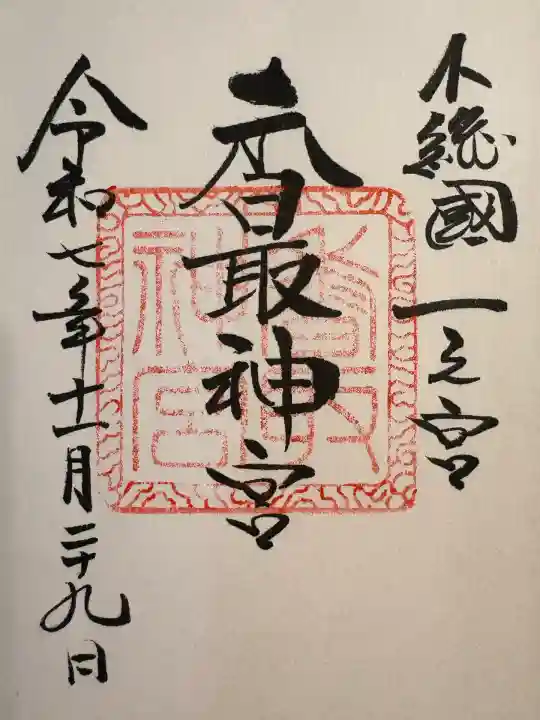 下総國 一之宮
香取神宮
令和七年十一月二十九日
香取神宮